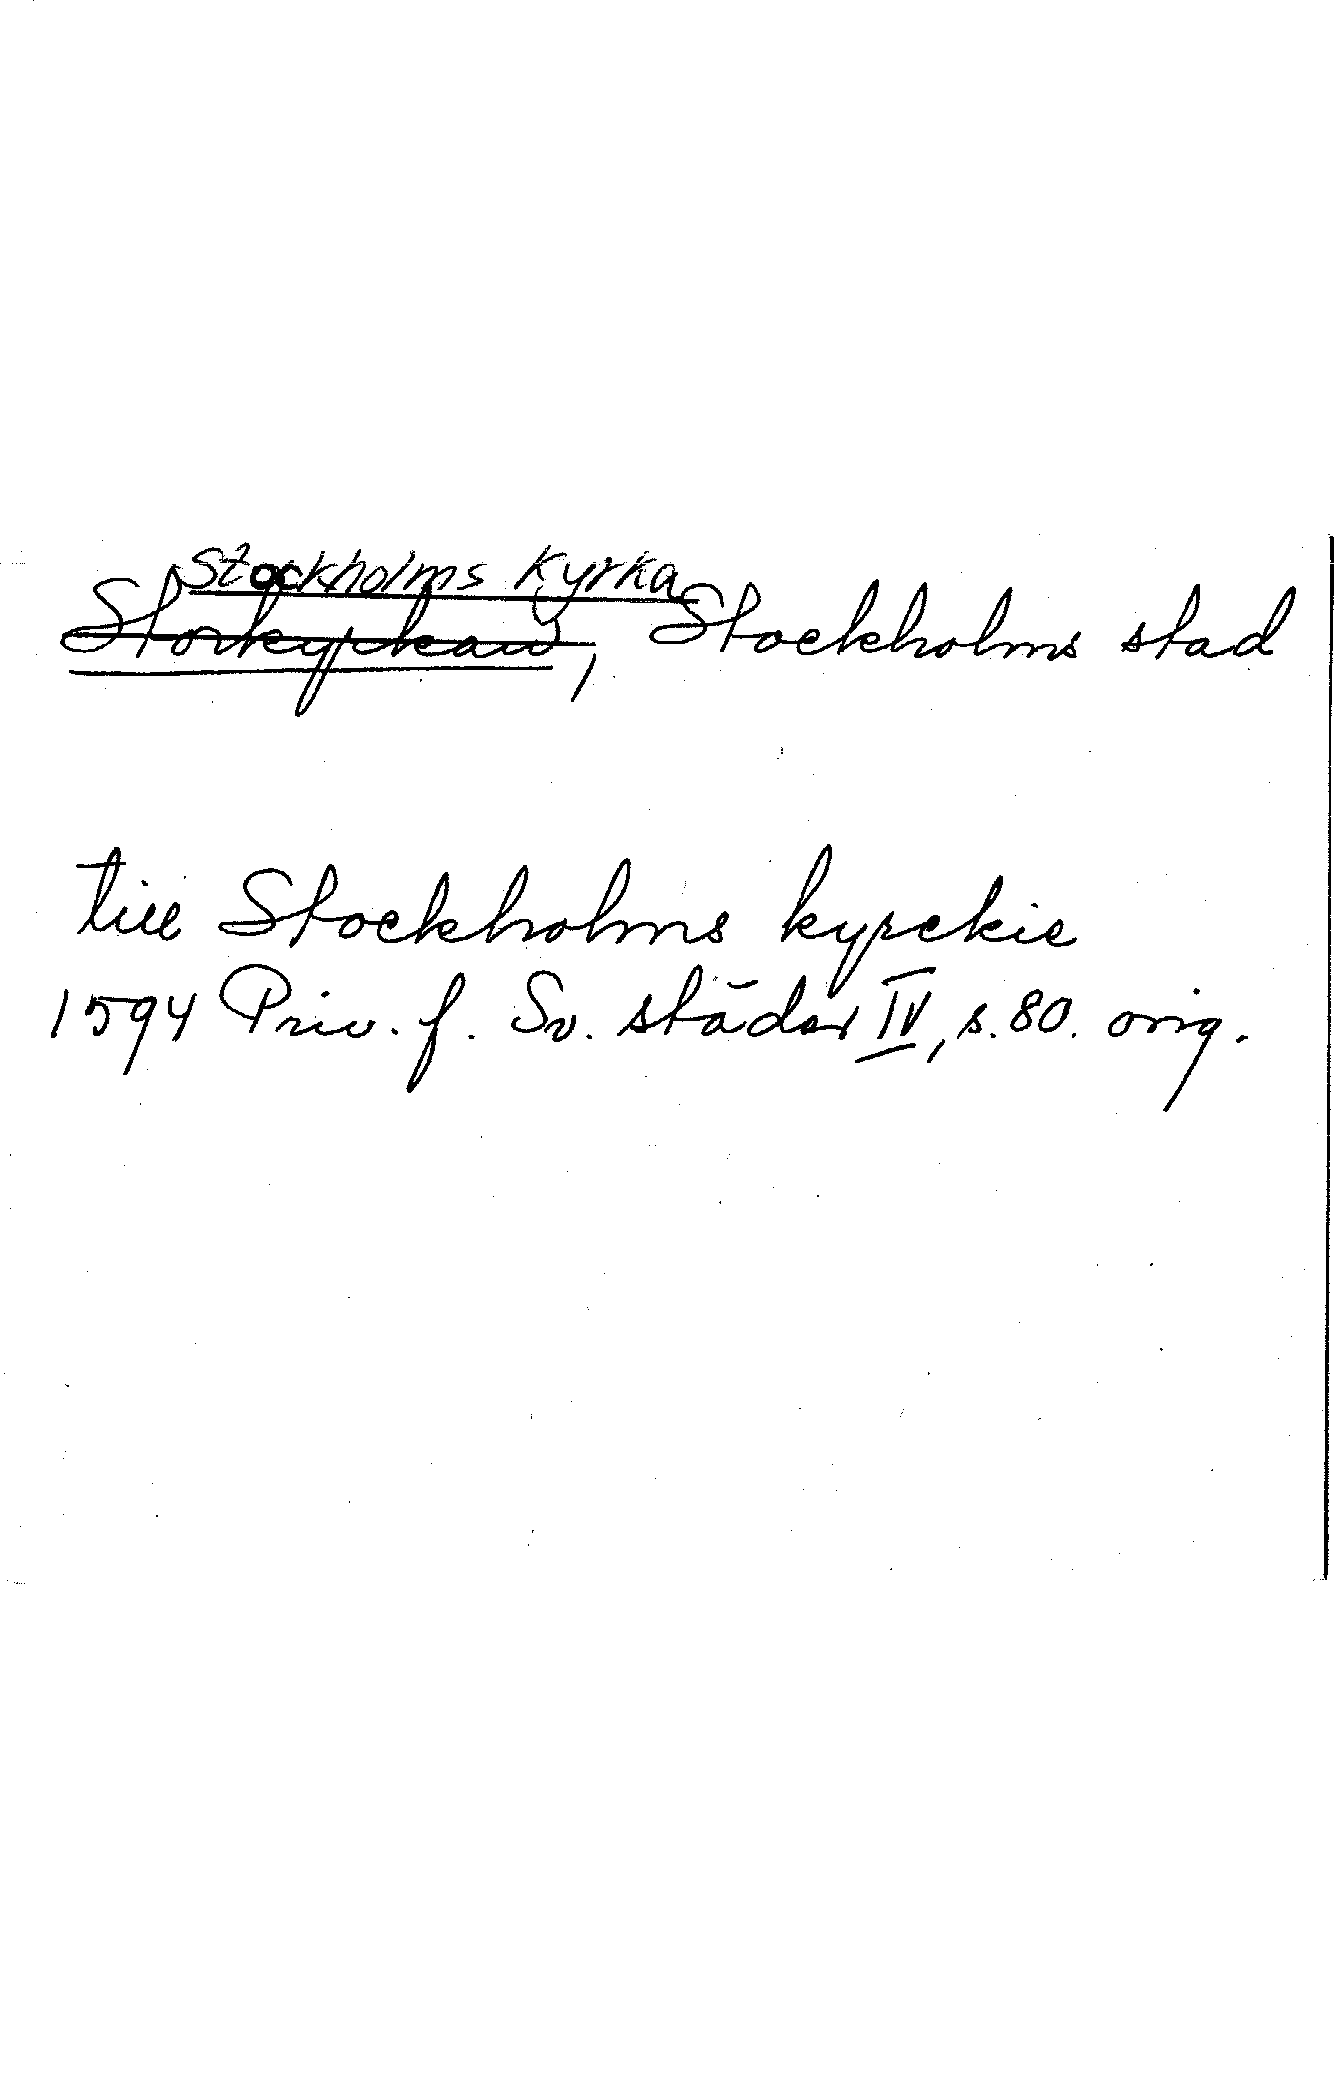 Stockholms kyrka
Storkyrkan, Stockholms stad
till Stockholms kyrckie
1594 Priv. f. Sv. städer IV, s. 80. orig.